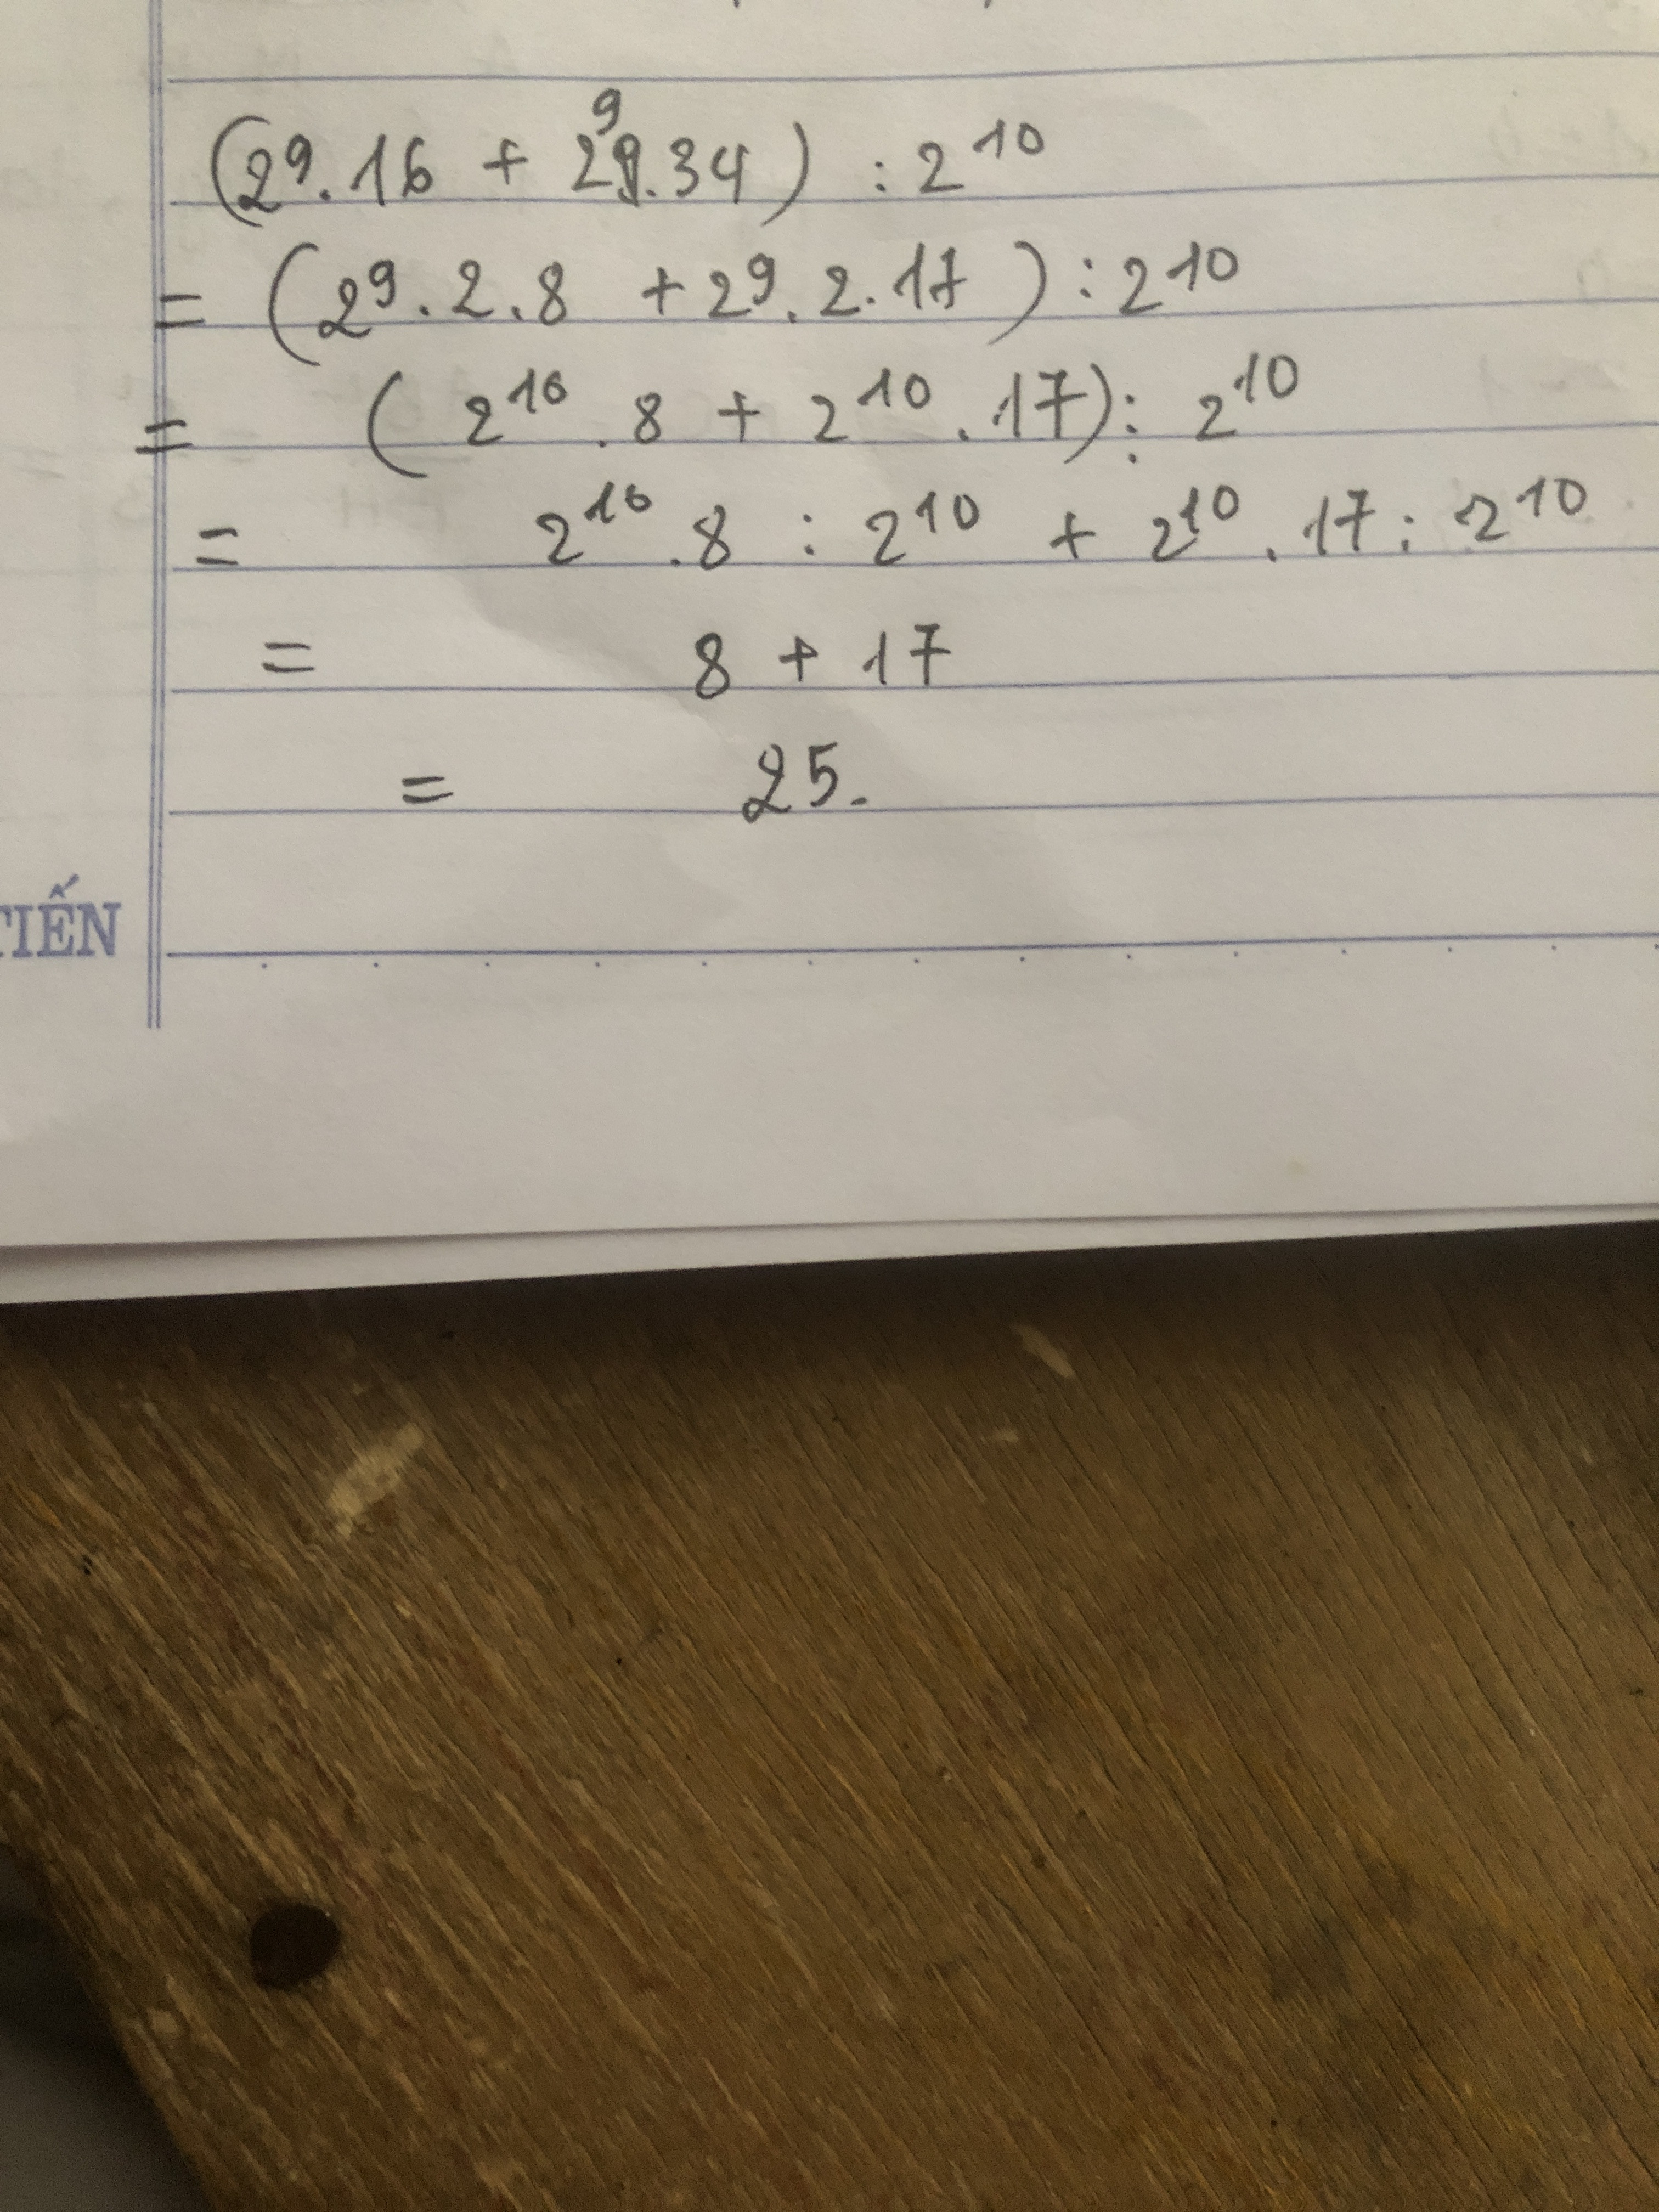 (2⁹.16 + 2⁹.34) : 2¹⁰
= (2⁹.2.8 + 2⁹.2.17) : 2¹⁰
= (2¹⁰.8 + 2¹⁰.17) : 2¹⁰
= 2¹⁰.8 : 2¹⁰ + 2¹⁰.17 : 2¹⁰
= 8 + 17
= 25.
TIẾN